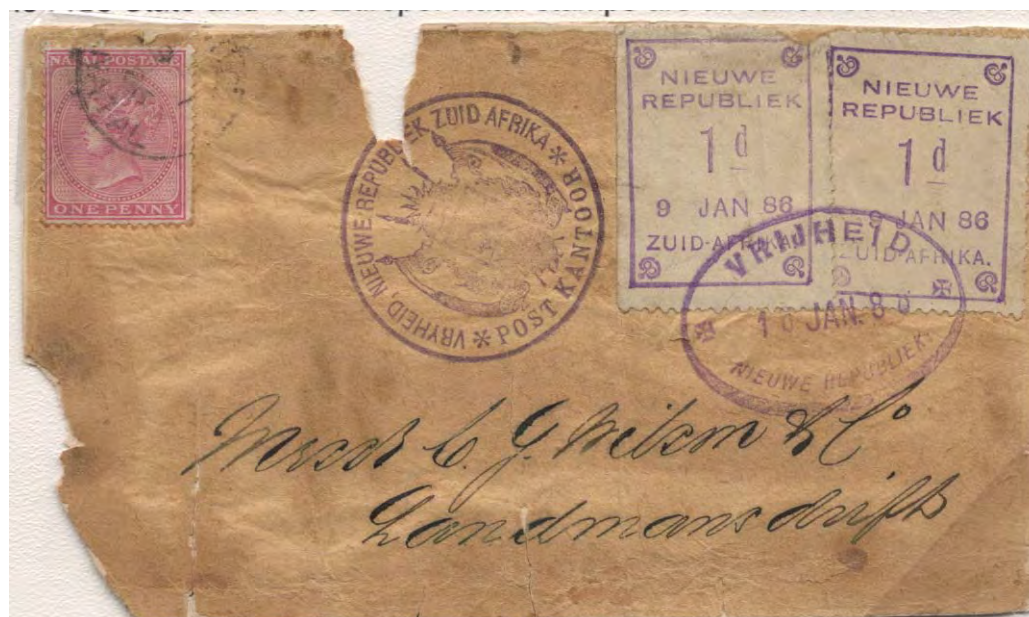 NATAL POSTAGE
ONE PENNY
VRYHEID NIEUWE REPUBLIEK ZUID AFRIKA * POST KANTOOR *
NIEUWE
REPUBLIEK
1d
9 JAN 86
ZUID-AFRIKA.
NIEUWE
REPUBLIEK
1d
9 JAN 86
ZUID-AFRIKA.
VRIJHEID
JAN. 8
NIEUWE REPUBLIEK.
Messrs C. G. & Co
Landmansdrift